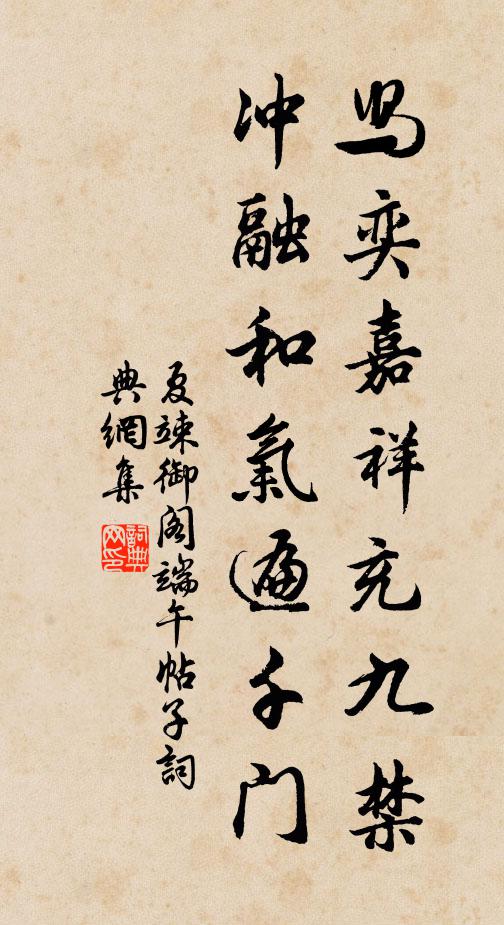 舄奕嘉祥充九禁
冲融和氣遍千门
夏竦御阁端午帖子詞
典網集
詞典网印